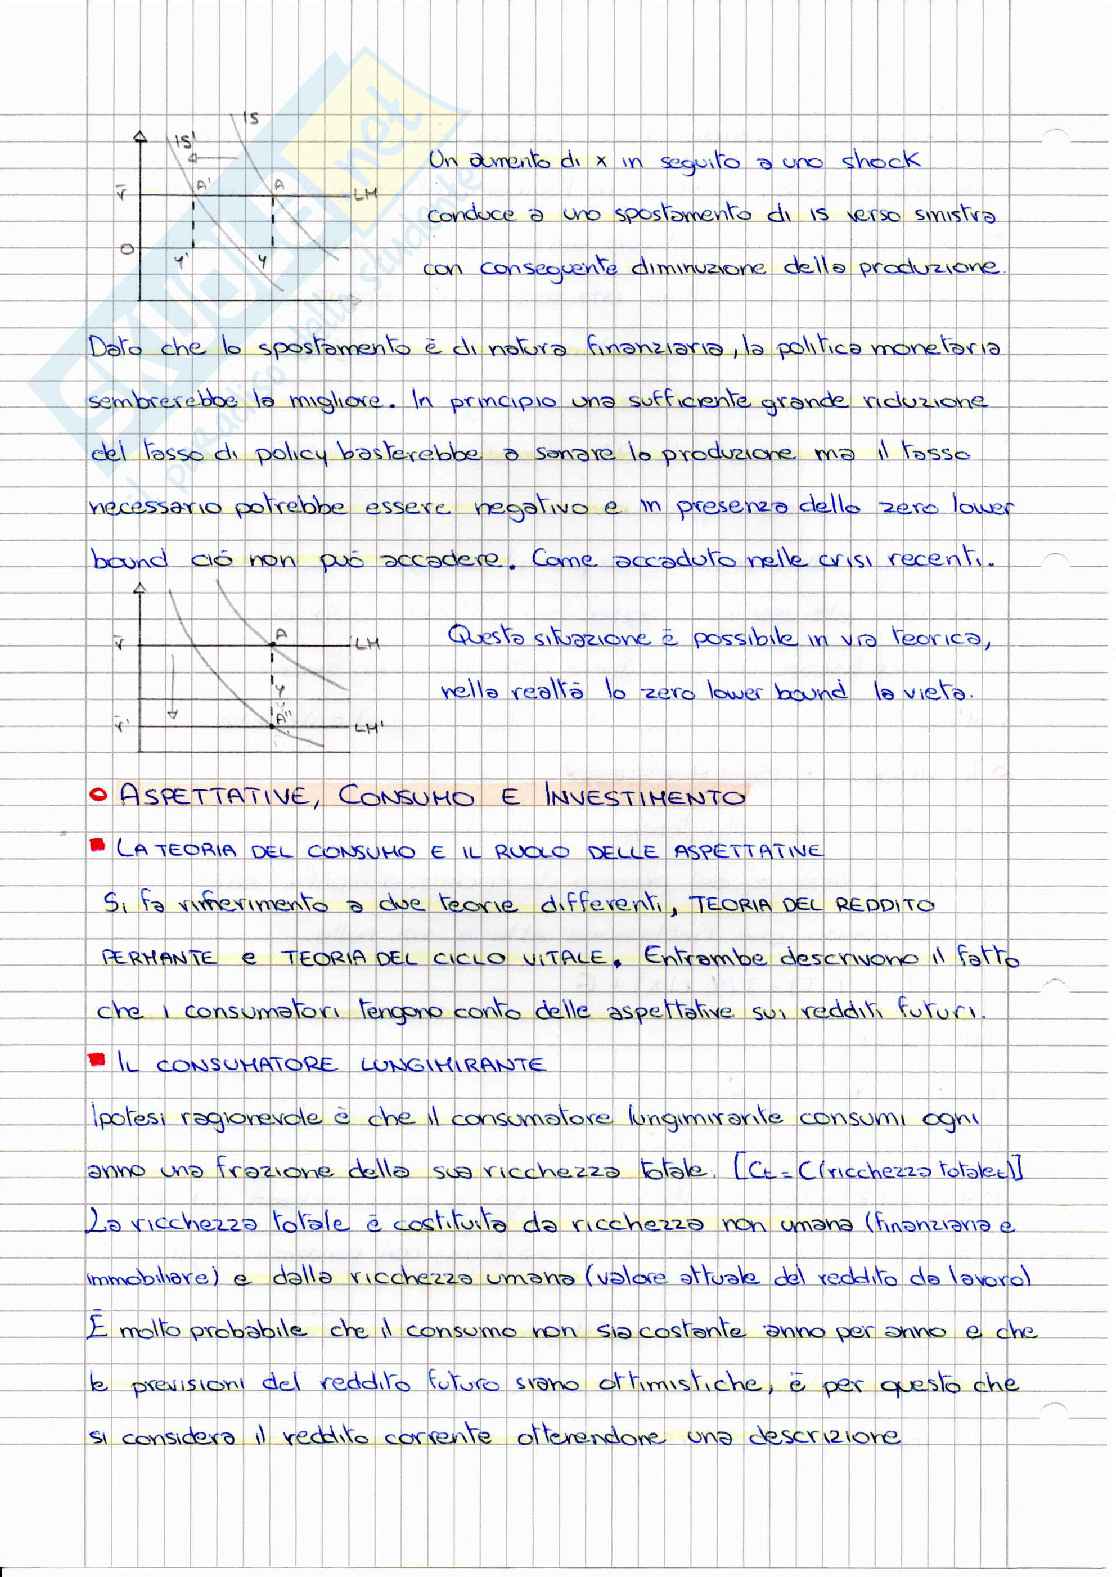 IS
IS'
A'
A
r̄
LM
O
Y'
Y
Un aumento di x in seguito a uno shock
conduce a uno spostamento di IS verso sinistra
con conseguente diminuzione della produzione.
Dato che lo spostamento è di natura finanziaria, la politica monetaria
sembrerebbe la migliore. In principio una sufficiente grande riduzione
del tasso di policy basterebbe a sanare la produzione ma il tasso
necessario potrebbe essere negativo e in presenza dello zero lower
bound ciò non può accadere. Come accaduto nelle crisi recenti.
r̄
A
LM
Y
A''
r̄'
LM'
Questa situazione è possibile in via teorica,
nella realtà lo zero lower bound la vieta.
ASPETTATIVE, CONSUMO E INVESTIMENTO
LA TEORIA DEL CONSUMO E IL RUOLO DELLE ASPETTATIVE
Si fa rifferimento a due teorie differenti, TEORIA DEL REDDITO
PERMANTE e TEORIA DEL CICLO VITALE. Entrambe descrivono il fatto
che i consumatori tengono conto delle aspettative sui redditi futuri.
IL CONSUMATORE LUNGIMIRANTE
Ipotesi ragionevole è che il consumatore lungimirante consumi ogni
anno una frazione della sua ricchezza totale. [Ct = C(ricchezza totalet)]
La ricchezza totale è costituita da ricchezza non umana (finanziaria e
immobiliare) e dalla ricchezza umana (valore attuale del reddito da lavoro)
È molto probabile che il consumo non sia costante anno per anno e che
le previsioni del reddito futuro siano ottimistiche, è per questo che
si considera il reddito corrente ottenendone una descrizione